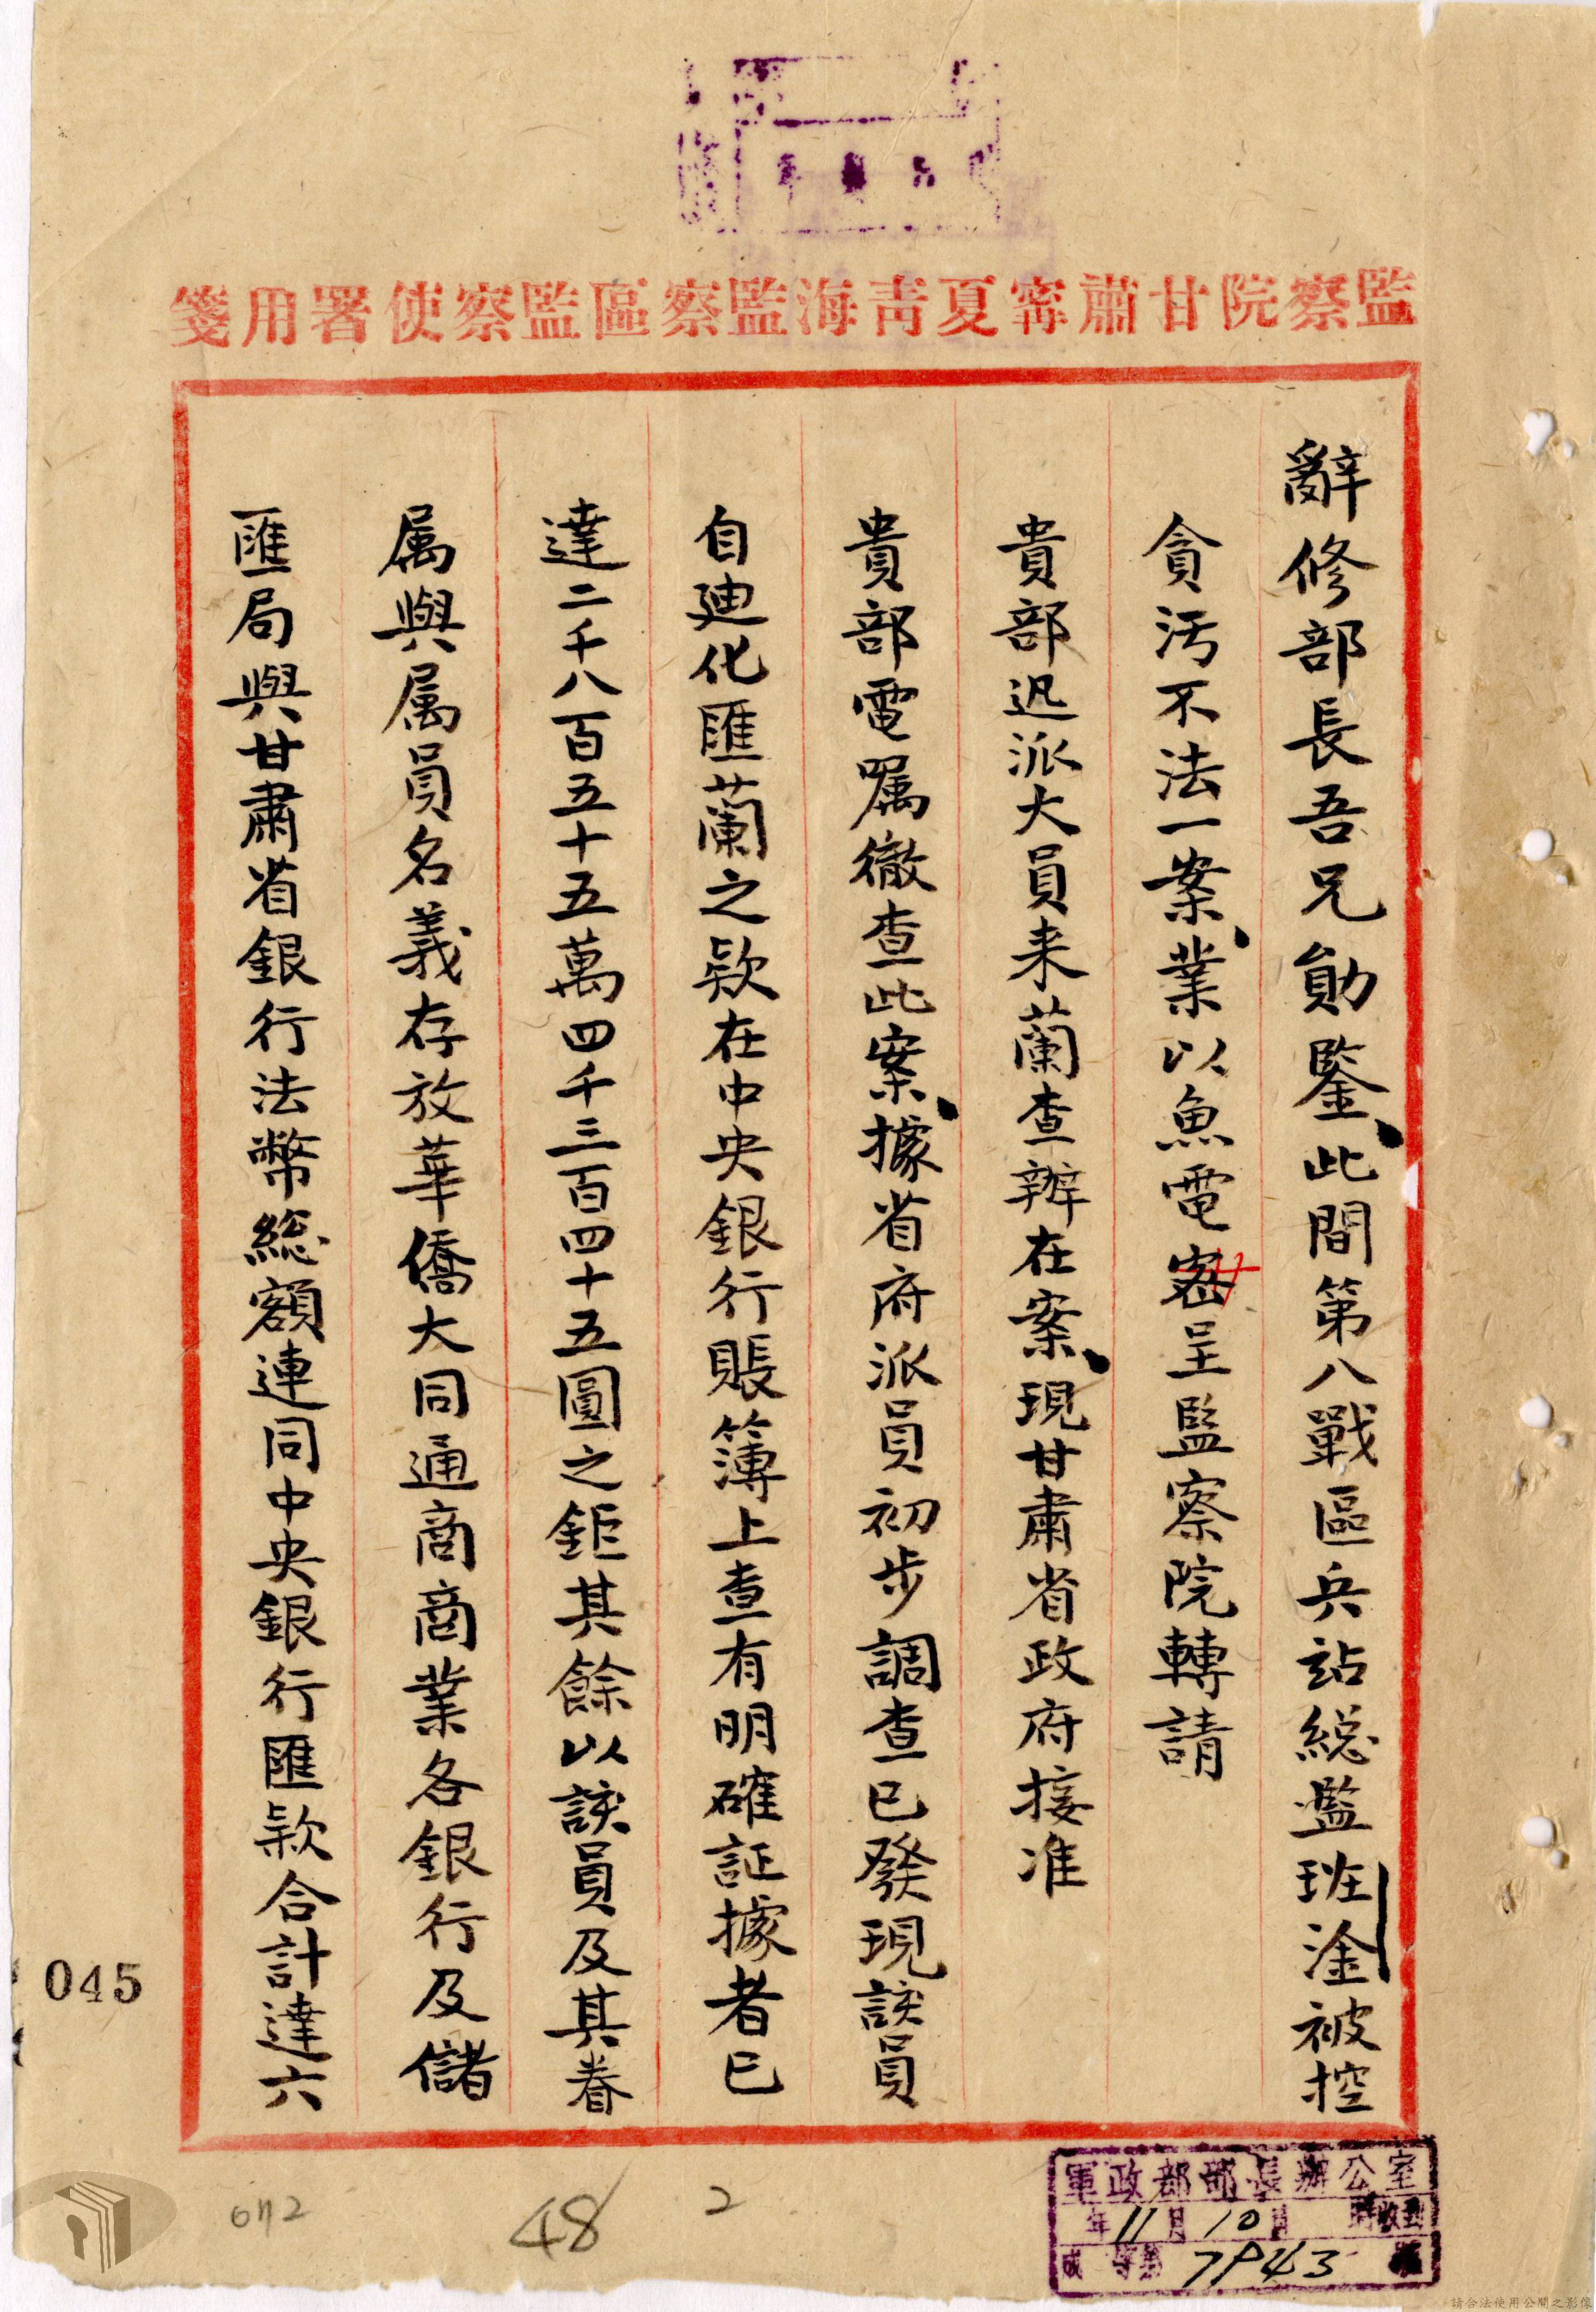 監察院甘肅寧夏青海監察區監察使署用箋
辭修部長吾兄勛鑒、此間第八戰區兵站総監班淦被控
貪污不法一案、業以魚電密呈監察院轉請
貴部迅派大員来蘭查辦在案、現甘肅省政府接准
貴部電属徹查此案、據省府派員初步調查已發現該員
自迪化匯蘭之款在中央銀行賬簿上查有明確証據者已
達二千八百五十五萬四千三百四十五圓之鉅其餘以該員及其眷
属與属員名義存放華僑大同通商商業各銀行及儲
匯局與甘肅省銀行法幣総額連同中央銀行匯款合計達六
045
軍政部部長辦公室
年11月10日 時收到
號
48
2
請合法使用公開之影像